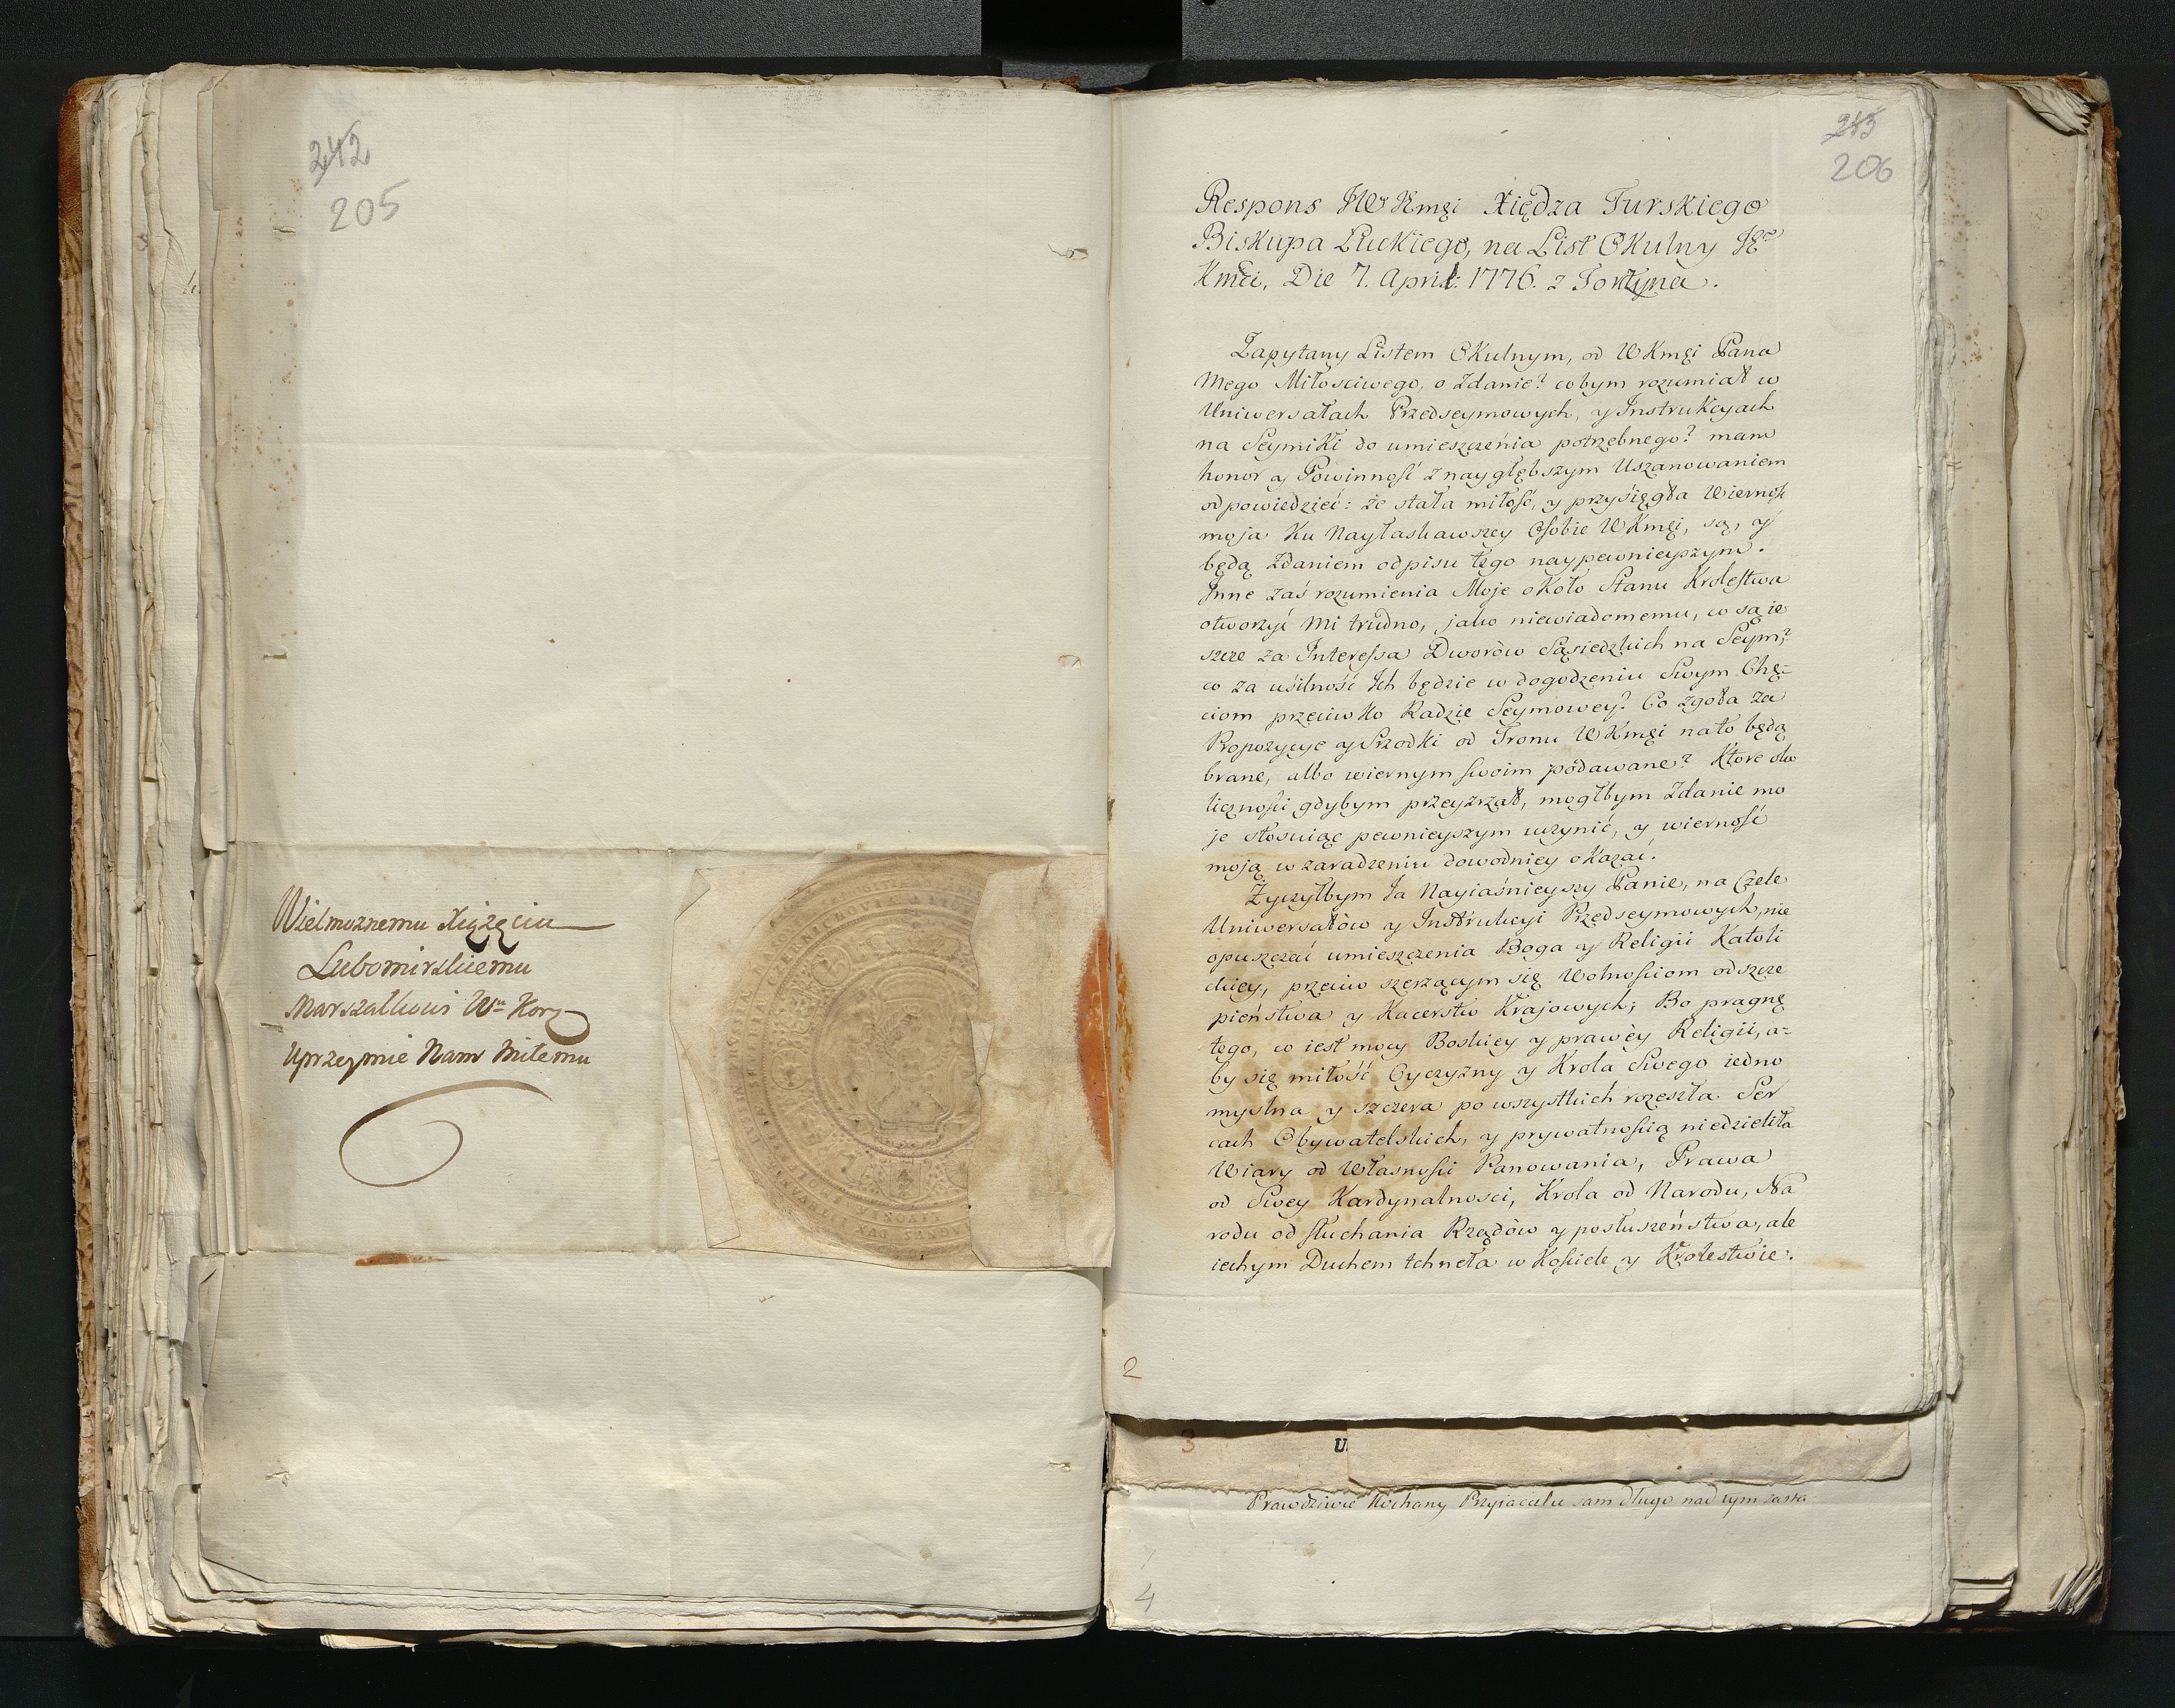 242
205
Wielmoznemu Xiążęciu
Lubomirskiemu
Marszałkowi Wu Kor
Uprzeymie Nam Miłemu
245
206
Respons JW Jmći Xiędza Turskiego
Biskupa Łuckiego, na List Okulny
Kmći, Die 7. April: 1776. z Torczyna.
Zapytany Listem Okulnym, od WKmći Pana
Mego Miłosciwego, o Zdanie? cobym rozumiał w
Uniwersałach Przedseymowych, y Instrukcyach
na Seymiki do umieszczenia potrzebnego? mam
honor y Powinność z naygłębszym Uszanowaniem
odpowiedzieć: że stała miłość, y przysięgła Wierność
moja Ku Nayłaskawszey Osobie WKmći, są, y
będą Zdaniem odpisu tego naypewnieyszym.
Inne zaś rozumienia Moje około Stanu Krolestwa
otworzyć mi trudno, jako niewiadomemu, co są ie
szcze za Interessa Dworów Sąsiedzkich na Seym?
co za usilność Ich będzie w dogodzeniu Swym Chę=
ciom przeciwko Radzie Seymowey? Co zgoła za
Propozycye y Srzodki od Tronu WKmći nato będą
brane, albo wiernym swoim podawane? Ktore oko
liczności gdybym przeyrzał, mogłbym Zdanie mo
je stosuiąc pewnieyszym uczynić, y wierność
moją w zaradzeniu dowodniey okazać.
Życzyłbym Ja Nayiaśnieyszy Panie, na Czele
Uniwersałów y Instrukcyi Przedseymowych, nie
opuszczać umieszczenia Boga y Religii Katoli
ckiey, przeciw szerzącym się Wolnościom odszcze
pieństwa y Kacerstw Krajowych; Bo pragnę
tego, co iest mocy Boskiey y prawey Religii, a=
by się miłość Oyczyzny y Krola Swego iedno
myslna y szczera po wszystkich rozeszła Ser
cach Obywatelskich, y prywatnością niedzieliła
Wiary od Własności Panowania, Prawa
od Swey Kardynalnosci, Krola od Narodu, Na
rodu od słuchania Rządów y posłuszeństwa, ale
iednym Duchem tchneła w Kościele y Krolestwie.
2
3
U
Prawdziwie Kochany Przyiacielu sam długo nad tym
4